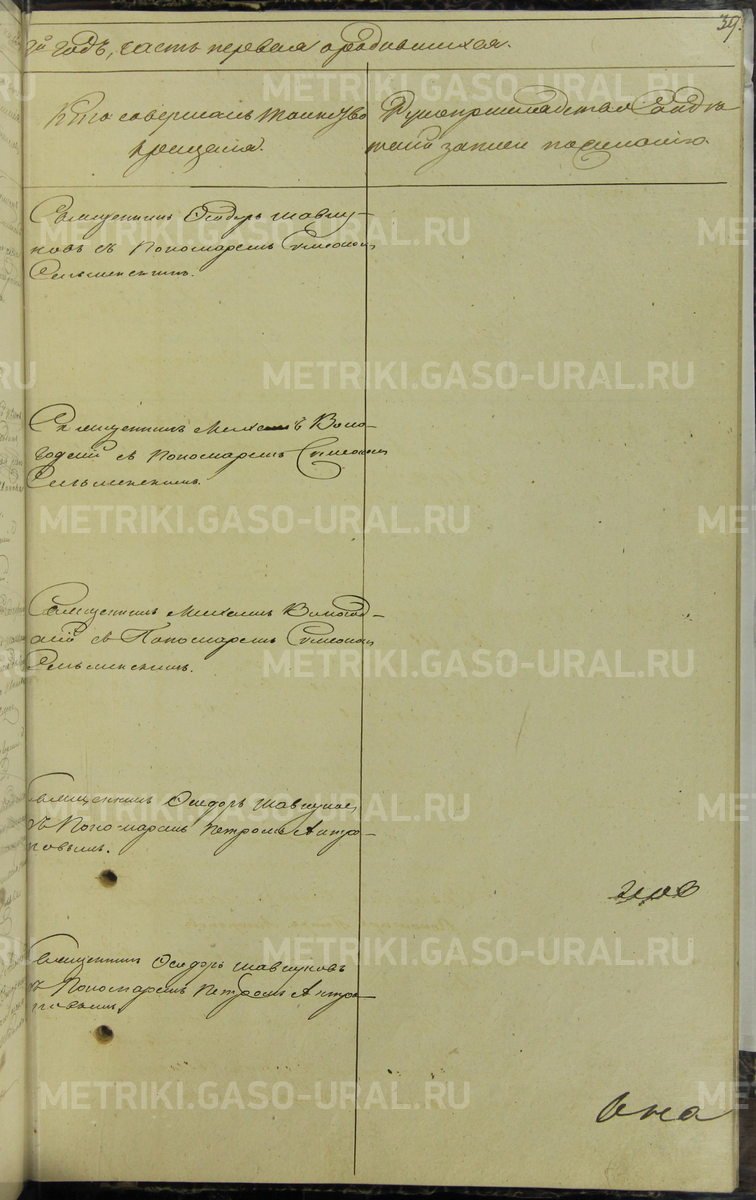 39.
й годъ, часть первая о родившихся.
Кто совершалъ таинство
крещенія.
Рукоприкладство свидѣ
телей записи по желанію.
Священникъ Ѳеодоръ Шавку-
новъ съ Пономаремъ Симеономъ
Сельменскимъ.
Священникъ Михаилъ Воло-
годскій съ Пономаремъ Симеономъ
Сельменскимъ.
Священникъ Михаилъ Вологод-
скій съ Пономаремъ Симеономъ
Сельменскимъ.
Священникъ Ѳеодоръ Шавкуновъ
съ Пономаремъ Петромъ Антро-
повымъ.
Священникъ Ѳеодоръ Шавкуновъ
съ Пономаремъ Петромъ Антро-
повымъ.
она
METRIKI.GASO-URAL.RU